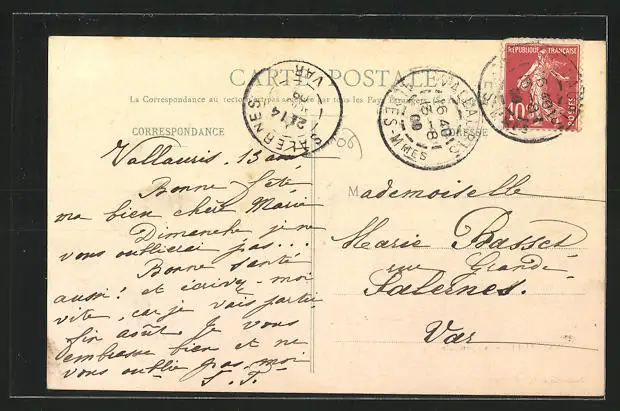 CARTE POSTALE
La Correspondance au recto n'est pas acceptée par tous les Pays Étrangers
CORRESPONDANCE
ADRESSE
RÉPUBLIQUE FRANÇAISE
10
POSTES
VALLAURIS
16 40
13 -8
06
ALPES-MMES
SALERNES
21 14
VAR
Vallauris, 13 août
Bonne fête
ma bien chère Marie
Dimanche je ne
vous oublierai pas...
Bonne santé
aussi! et écrivez-moi
vite, car je vais partir
fin août. Je vous
embrasse bien et ne
vous oublie pas. moi
Mademoiselle
Marie Basset
rue Grande
Salernes.
Var